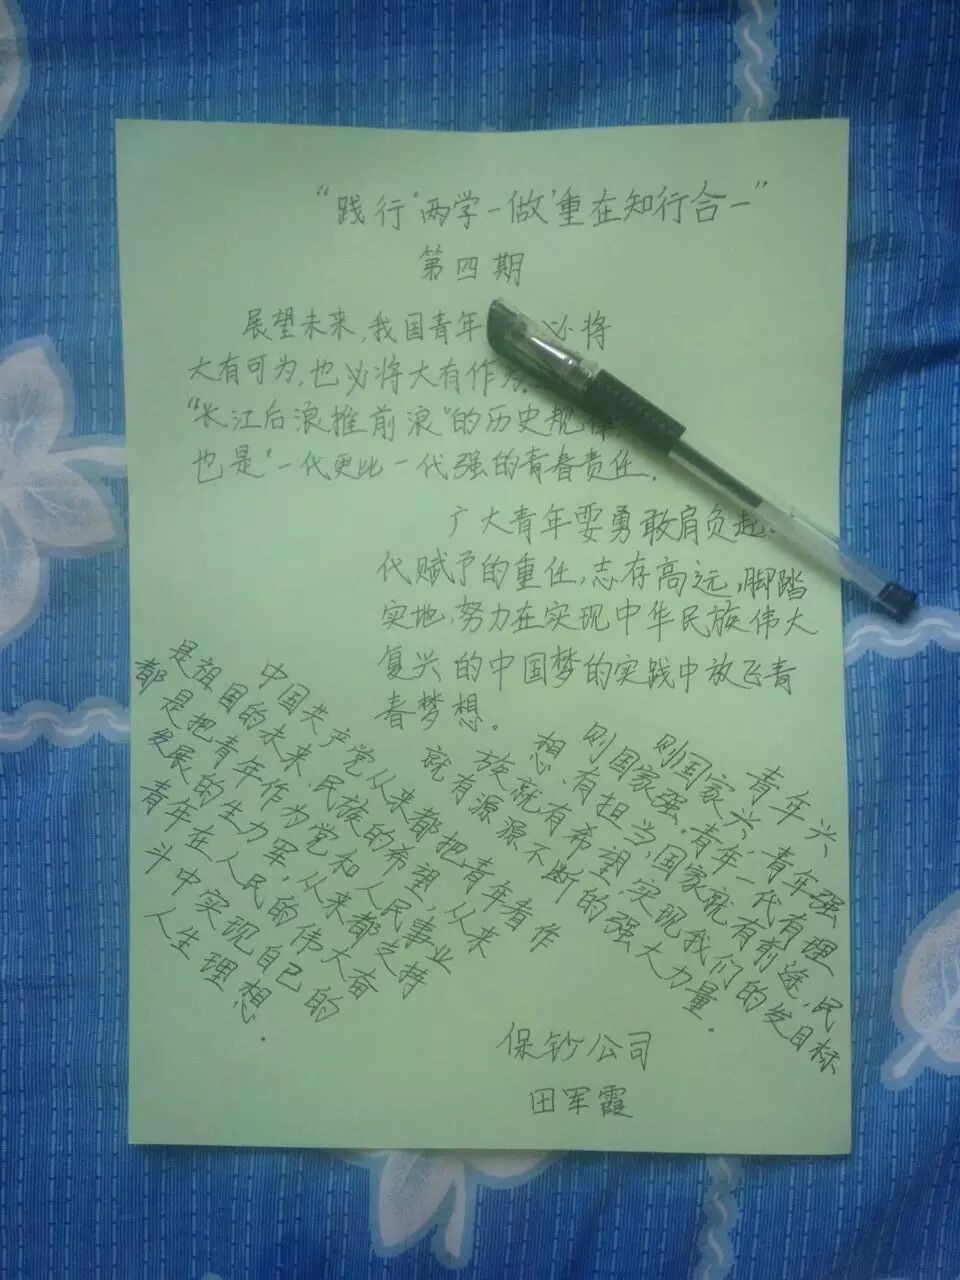 “践行‘两学一做’重在知行合一”
第四期
展望未来,我国青年 必将
大有可为,也必将大有作为.
“长江后浪推前浪”的历史规律
也是“一代更比一代强的青春责任.
广大青年要勇敢肩负起
代赋予的重任,志存高远,脚踏
实地,努力在实现中华民族伟大
复兴的中国梦的实践中放飞青
春梦想.
中国共产党从来都把青年看作
是祖国的未来、民族的希望,从来
都是把青年作为党和人民事业
发展的生力军,从来都支持
青年在人民的伟大奋
斗中实现自己的
人生理想.
青年兴
则国家兴,青年强
则国家强.青年一代有理
想、有担当,国家就有前途,民
族就有希望,实现我们的发目标
就有源源不断的强大力量.
保钞公司
田军霞